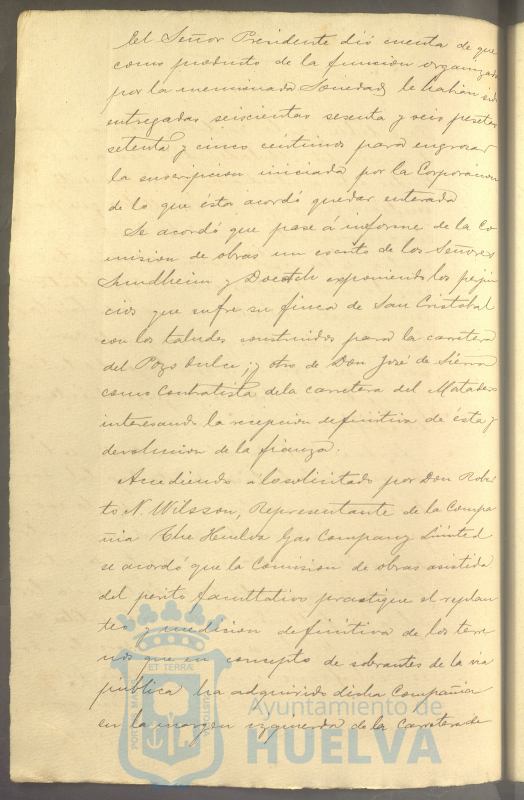 El Señor Presidente dió cuenta de que
como producto de la funcion organizada
por la mencionada Sociedad le habian sido
entregadas seiscientas sesenta y seis pesetas
setenta y cinco céntimos para engrosar
la suscripcion iniciada por la Corporacion
de lo que ésta acordó quedar enterada
Se acordó que pase á informe de la Co
mision de obras un escrito de los Señores
Sundheim y Doetsch exponiendo los perjui
cios que sufre su finca de San Cristobal
con los taludes construidos para la carretera
del Pozo dulce; y otro de Don José de Sierra
como Contratista de la carretera del Matadero
interesando la recepcion definitiva de ésta y
devolucion de la fianza.
Accediendo á lo solicitado por Don Rober
to N. Wilsson, Representante de la Compa
ñia The Huelva Gas Company Limited
se acordó que la Comision de obras asistida
del perito facultativo practique el replan
teo y medicion definitiva de los terre
nos que en concepto de sobrantes de la via
pública ha adquirido dicha Compañia
en la margen izquierda de la Carretera de
PORTUS MARIS ET TERRÆ CUSTODIA
Ayuntamiento de
HUELVA